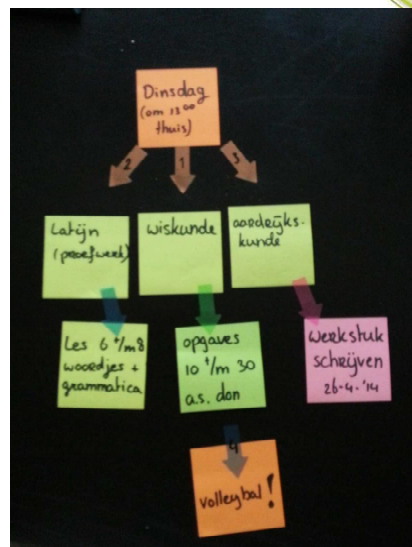 Dinsdag
(om 13⁰⁰
thuis)
2
1
3
Latijn
(proefwerk)
wiskunde
aardrijks-
kunde
Les 6 t/m 8
woordjes +
grammatica
opgaves
10 t/m 30
a.s. don
werkstuk
schrijven
26-4-'14
4
volleybal!